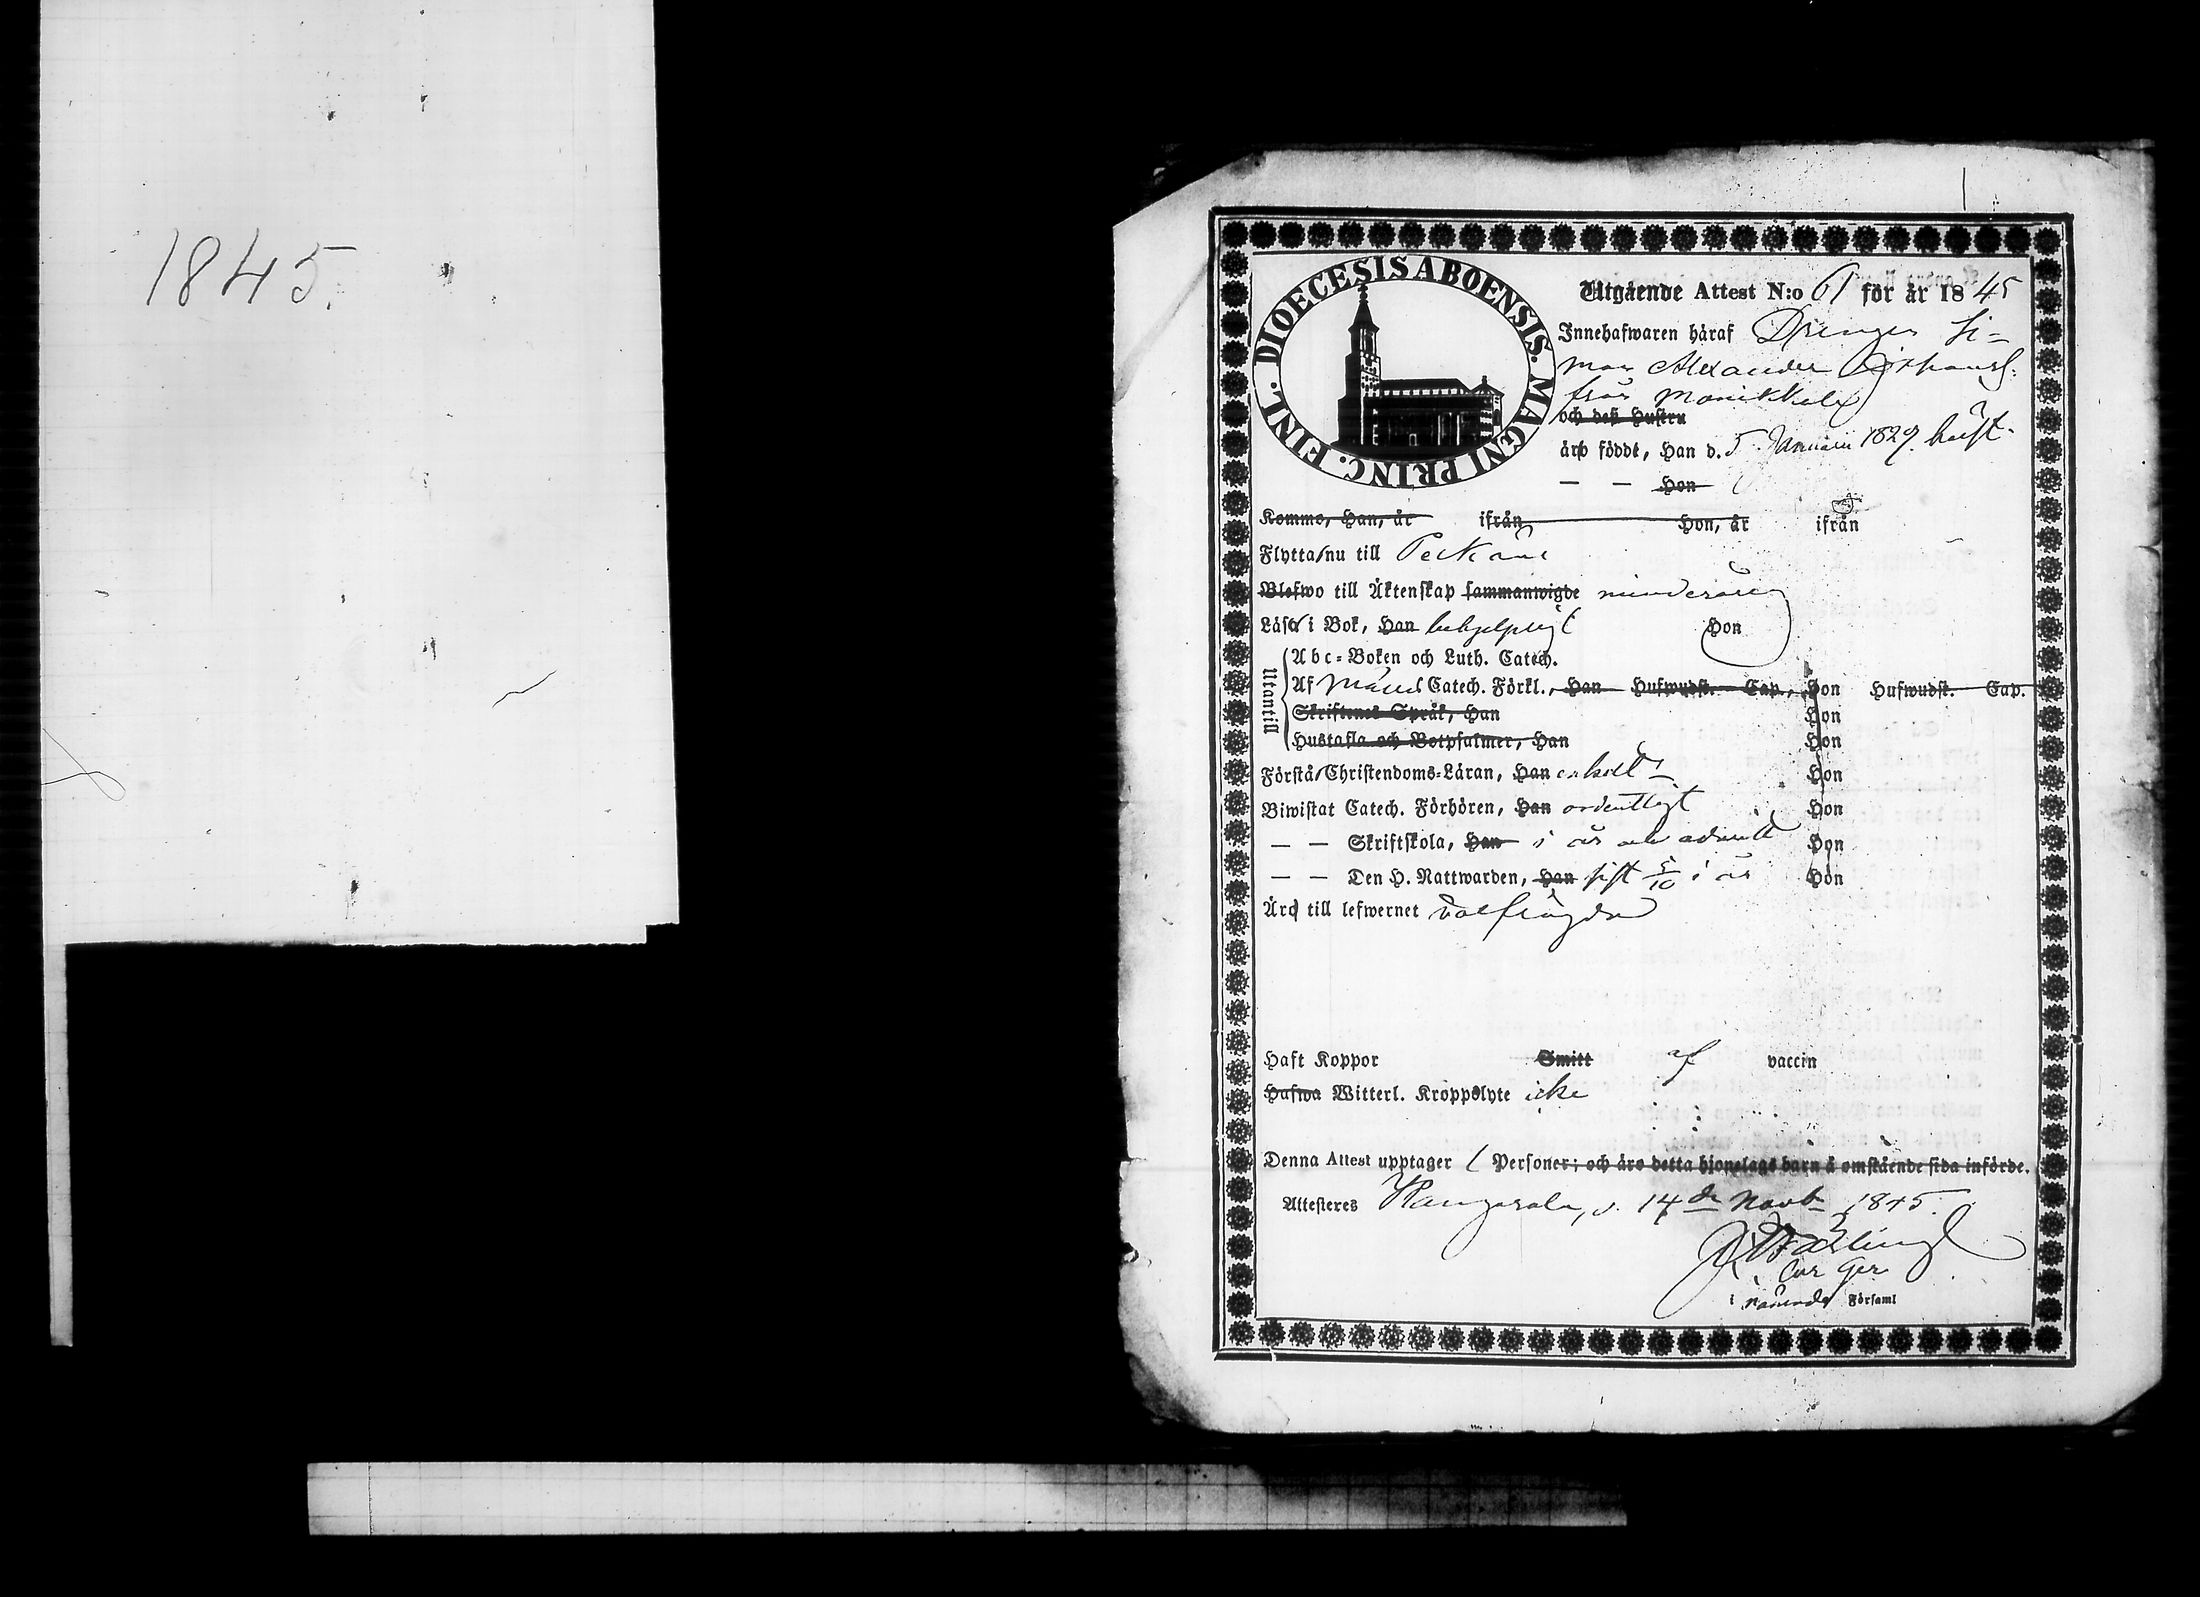 1845.
DIOECESIS ABOENSIS. MAGNI PRINC. FINL.
Utgående Attest N:o 61 för år 1845
Innehafwaren häraf Drengen Si=
mon Alexander
från
och deß Hustru
äro födde, Han d. 5 Januarii 1829
— — Hon
Komme, Han, år ifrån Hon, år ifrån
Flytta nu till Pelkäne
Blefwo till Äktenskap sammanwigde minderårig
Läsa i Bok, Han behjelpligt Hon
Utantill
Abc=Boken och Luth. Catech.
Af Catech. Förkl., Han Hufwudst. Cap., Hon Hufwudst. Cap.
Skriftenes Språk, Han Hon
Hustafla och Botpsalmer, Han Hon
Förstå Christendoms=Läran, Han enkelt Hon
Biwistat Catech. Förhören, Han ordentligt Hon
— — Skriftskola, Han i år och admitt Hon
— — Den H. Nattwarden, Han sist 5/10 i år Hon
Äro till lefwernet välfrägdad
Haft Koppor Smitt af vaccin
Hafwa Witterl. Kroppslyte icke
Denna Attest upptager 1 Personer; och äro detta hjonelags barn å omstående sida införde.
Attesteres Kangasala, d. 14de Novb 1845.
i Församl